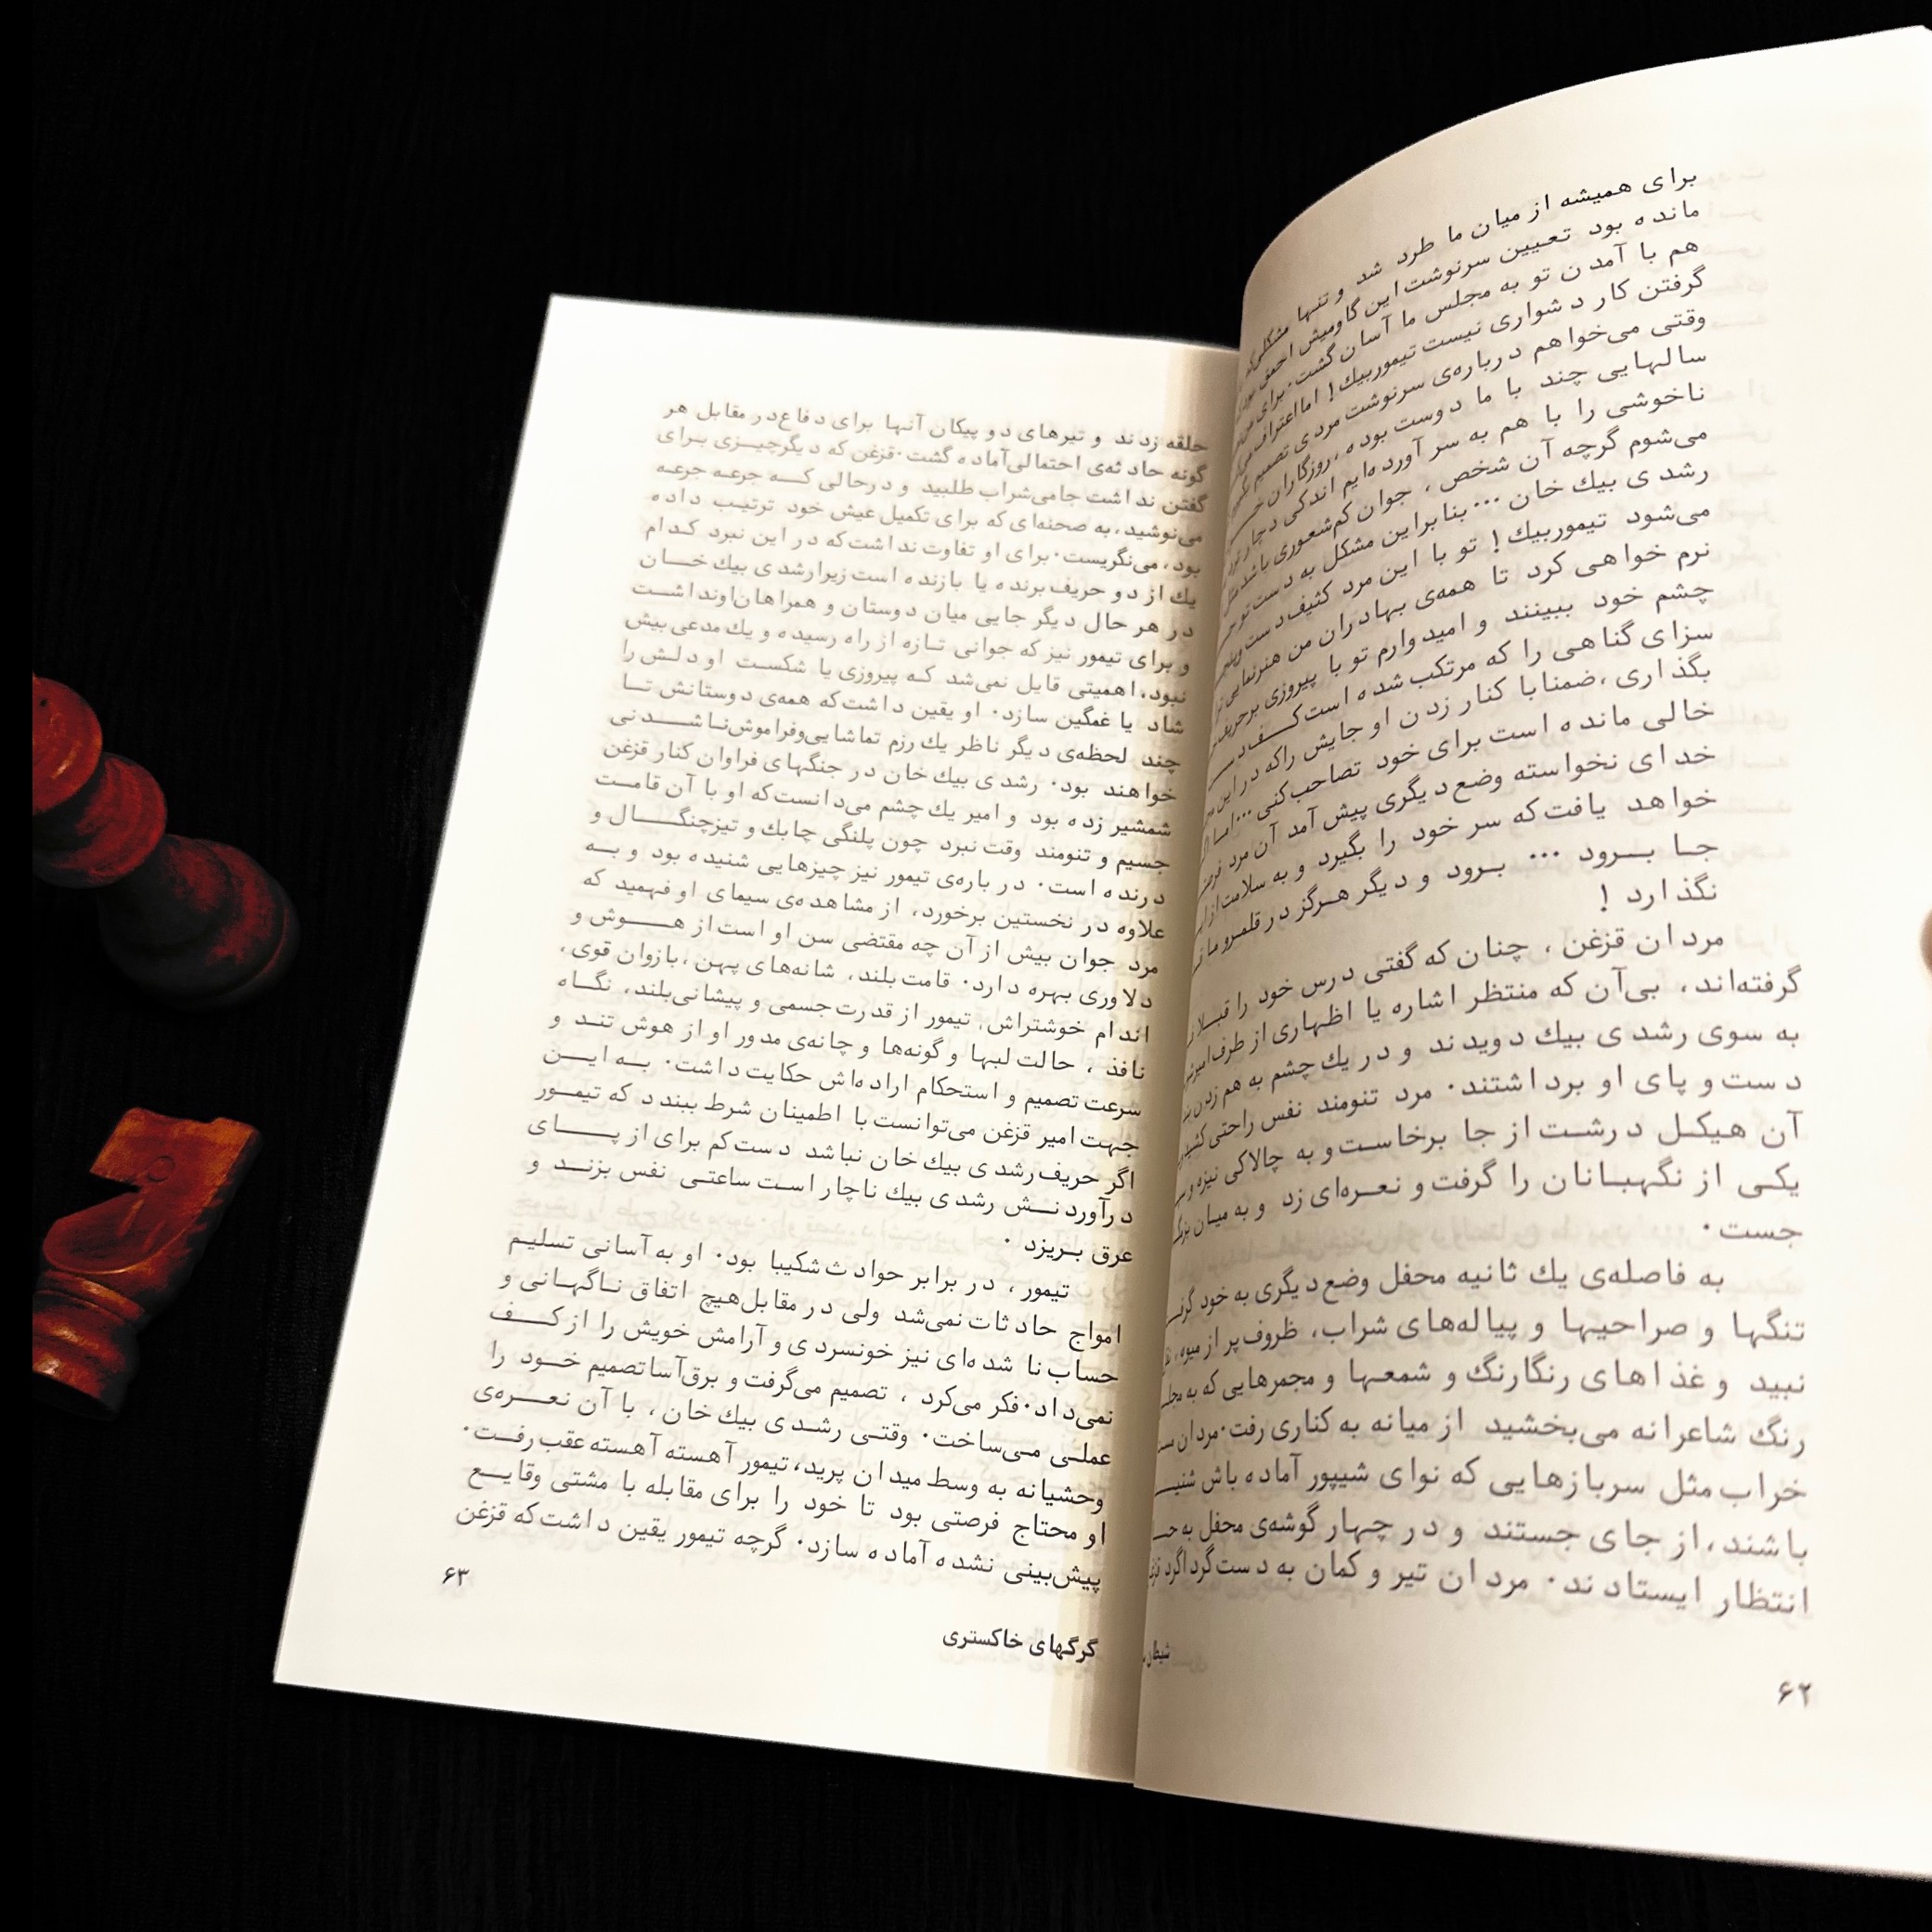 برای همیشه از میان ما طرد شد و تنها مشکلی که
مانده بود تعیین سرنوشت این گاومیش احمق بود،
هم با آمدن تو به مجلس ما آسان گشت. برای من
گرفتن کار دشواری نیست تیموربیك! اما اعتراف می‌کنم
وقتی می‌خواهم درباره‌ی سرنوشت مردی تصمیم
سالهایی چند با ما دوست بوده، روزگاران
ناخوشی را با هم به سر آورده‌ایم اندکی دچار
می‌شوم گرچه آن شخص، جوان کم‌شعوری باشد مثل
رشدی بیك خان ... بنابراین مشکل به دست تو
می‌شود تیموربیك! تو با این مرد کثیف دست و پنجه
نرم خواهی کرد تا همه‌ی بهادران من هنرنمایی تو
چشم خود ببینند و امیدوارم تو با پیروزی بر حریف
سزای گناهی را که مرتکب شده است کف دستش
بگذاری، ضمنا با کنار زدن او جایش را که در این
خالی مانده است برای خود تصاحب کنی ... اما اگر
خدای نخواسته وضع دیگری پیش آمد آن مرد فرصت
خواهد یافت که سر خود را بگیرد و به سلامت از این
جا برود ... برود و دیگر هرگز در قلمرو ما
نگذارد !
مردان قزغن، چنان که گفتی درس خود را قبلا
گرفته‌اند، بی‌آن که منتظر اشاره یا اظهاری از طرف امیر
به سوی رشدی بیك دویدند و در یك چشم به هم زدن
دست و پای او برداشتند. مرد تنومند نفس راحتی کشید
آن هیکل درشت از جا برخاست و به چالاکی نیزه و
یکی از نگهبانان را گرفت و نعره‌ای زد و به میان
جست.
به فاصله‌ی یك ثانیه محفل وضع دیگری به خود
تنگها و صراحیها و پیاله‌های شراب، ظروف پر از میوه،
نبید و غذاهای رنگارنگ و شمعها و مجمرهایی که به
رنگ شاعرانه می‌بخشید از میانه به کناری رفت. مردان
خراب مثل سربازهایی که نوای شیپور آماده باش
باشند، از جای جستند و در چهار گوشه‌ی محفل به
انتظار ایستادند. مردان تیر و کمان به دست گرداگرد
۶۲
حلقه زدند و تیرهای دو پیکان آنها برای دفاع در مقابل هر
گونه حادثه‌ی احتمالی آماده گشت. قزغن که دیگر چیزی برای
گفتن نداشت جامی شراب طلبید و درحالی که جرعه جرعه
می‌نوشید، به صحنه‌ای که برای تکمیل عیش خود ترتیب داده
بود، می‌نگریست. برای او تفاوت نداشت که در این نبرد کدام
یك از دو حریف برنده یا بازنده است زیرا رشدی بیك خان
در هر حال دیگر جایی میان دوستان و همراهان او نداشت
و برای تیمور نیز که جوانی تازه از راه رسیده و یك مدعی بیش
نبود، اهمیتی قایل نمی‌شد که پیروزی یا شکست او دلش را
شاد یا غمگین سازد. او یقین داشت که همه‌ی دوستانش تا
چند لحظه‌ی دیگر ناظر یك رزم تماشایی و فراموش‌ناشدنی
خواهند بود. رشدی بیك خان در جنگهای فراوان کنار قزغن
شمشیر زده بود و امیر یك چشم می‌دانست که او با آن قامت
جسیم و تنومند وقت نبرد چون پلنگی چابك و تیزچنگال و
درنده است. در باره‌ی تیمور نیز چیزهایی شنیده بود و به
علاوه در نخستین برخورد، از مشاهده‌ی سیمای او فهمید که
مرد جوان بیش از آن چه مقتضی سن او است از هوش و
دلاوری بهره دارد. قامت بلند، شانه‌های پهن، بازوان قوی،
اندام خوشتراش تیمور از قدرت جسمی و پیشانی بلند، نگاه
نافذ، حالت لبها و گونه‌ها و چانه‌ی مدور او از هوش تند و
سرعت تصمیم و استحکام اراده‌اش حکایت داشت. به این
جهت امیر قزغن می‌توانست با اطمینان شرط ببندد که تیمور
اگر حریف رشدی بیك خان نباشد دست‌کم برای از پای
درآوردنش رشدی بیك ناچار است ساعتی نفس بزند و
عرق بریزد .
تیمور، در برابر حوادث شکیبا بود. او به آسانی تسلیم
امواج حادثات نمی‌شد ولی در مقابل هیچ اتفاق ناگهانی و
حساب ناشده‌ای نیز خونسردی و آرامش خویش را از کف
نمی‌داد. فکر می‌کرد، تصمیم می‌گرفت و برق‌آسا تصمیم خود را
عملی می‌ساخت. وقتی رشدی بیك خان، با آن نعره‌ی
وحشیانه به وسط میدان پرید، تیمور آهسته آهسته عقب رفت.
او محتاج فرصتی بود تا خود را برای مقابله با مشتی وقایع
پیش‌بینی نشده آماده سازد. گرچه تیمور یقین داشت که قزغن
۶۳
گرگهای خاکستری